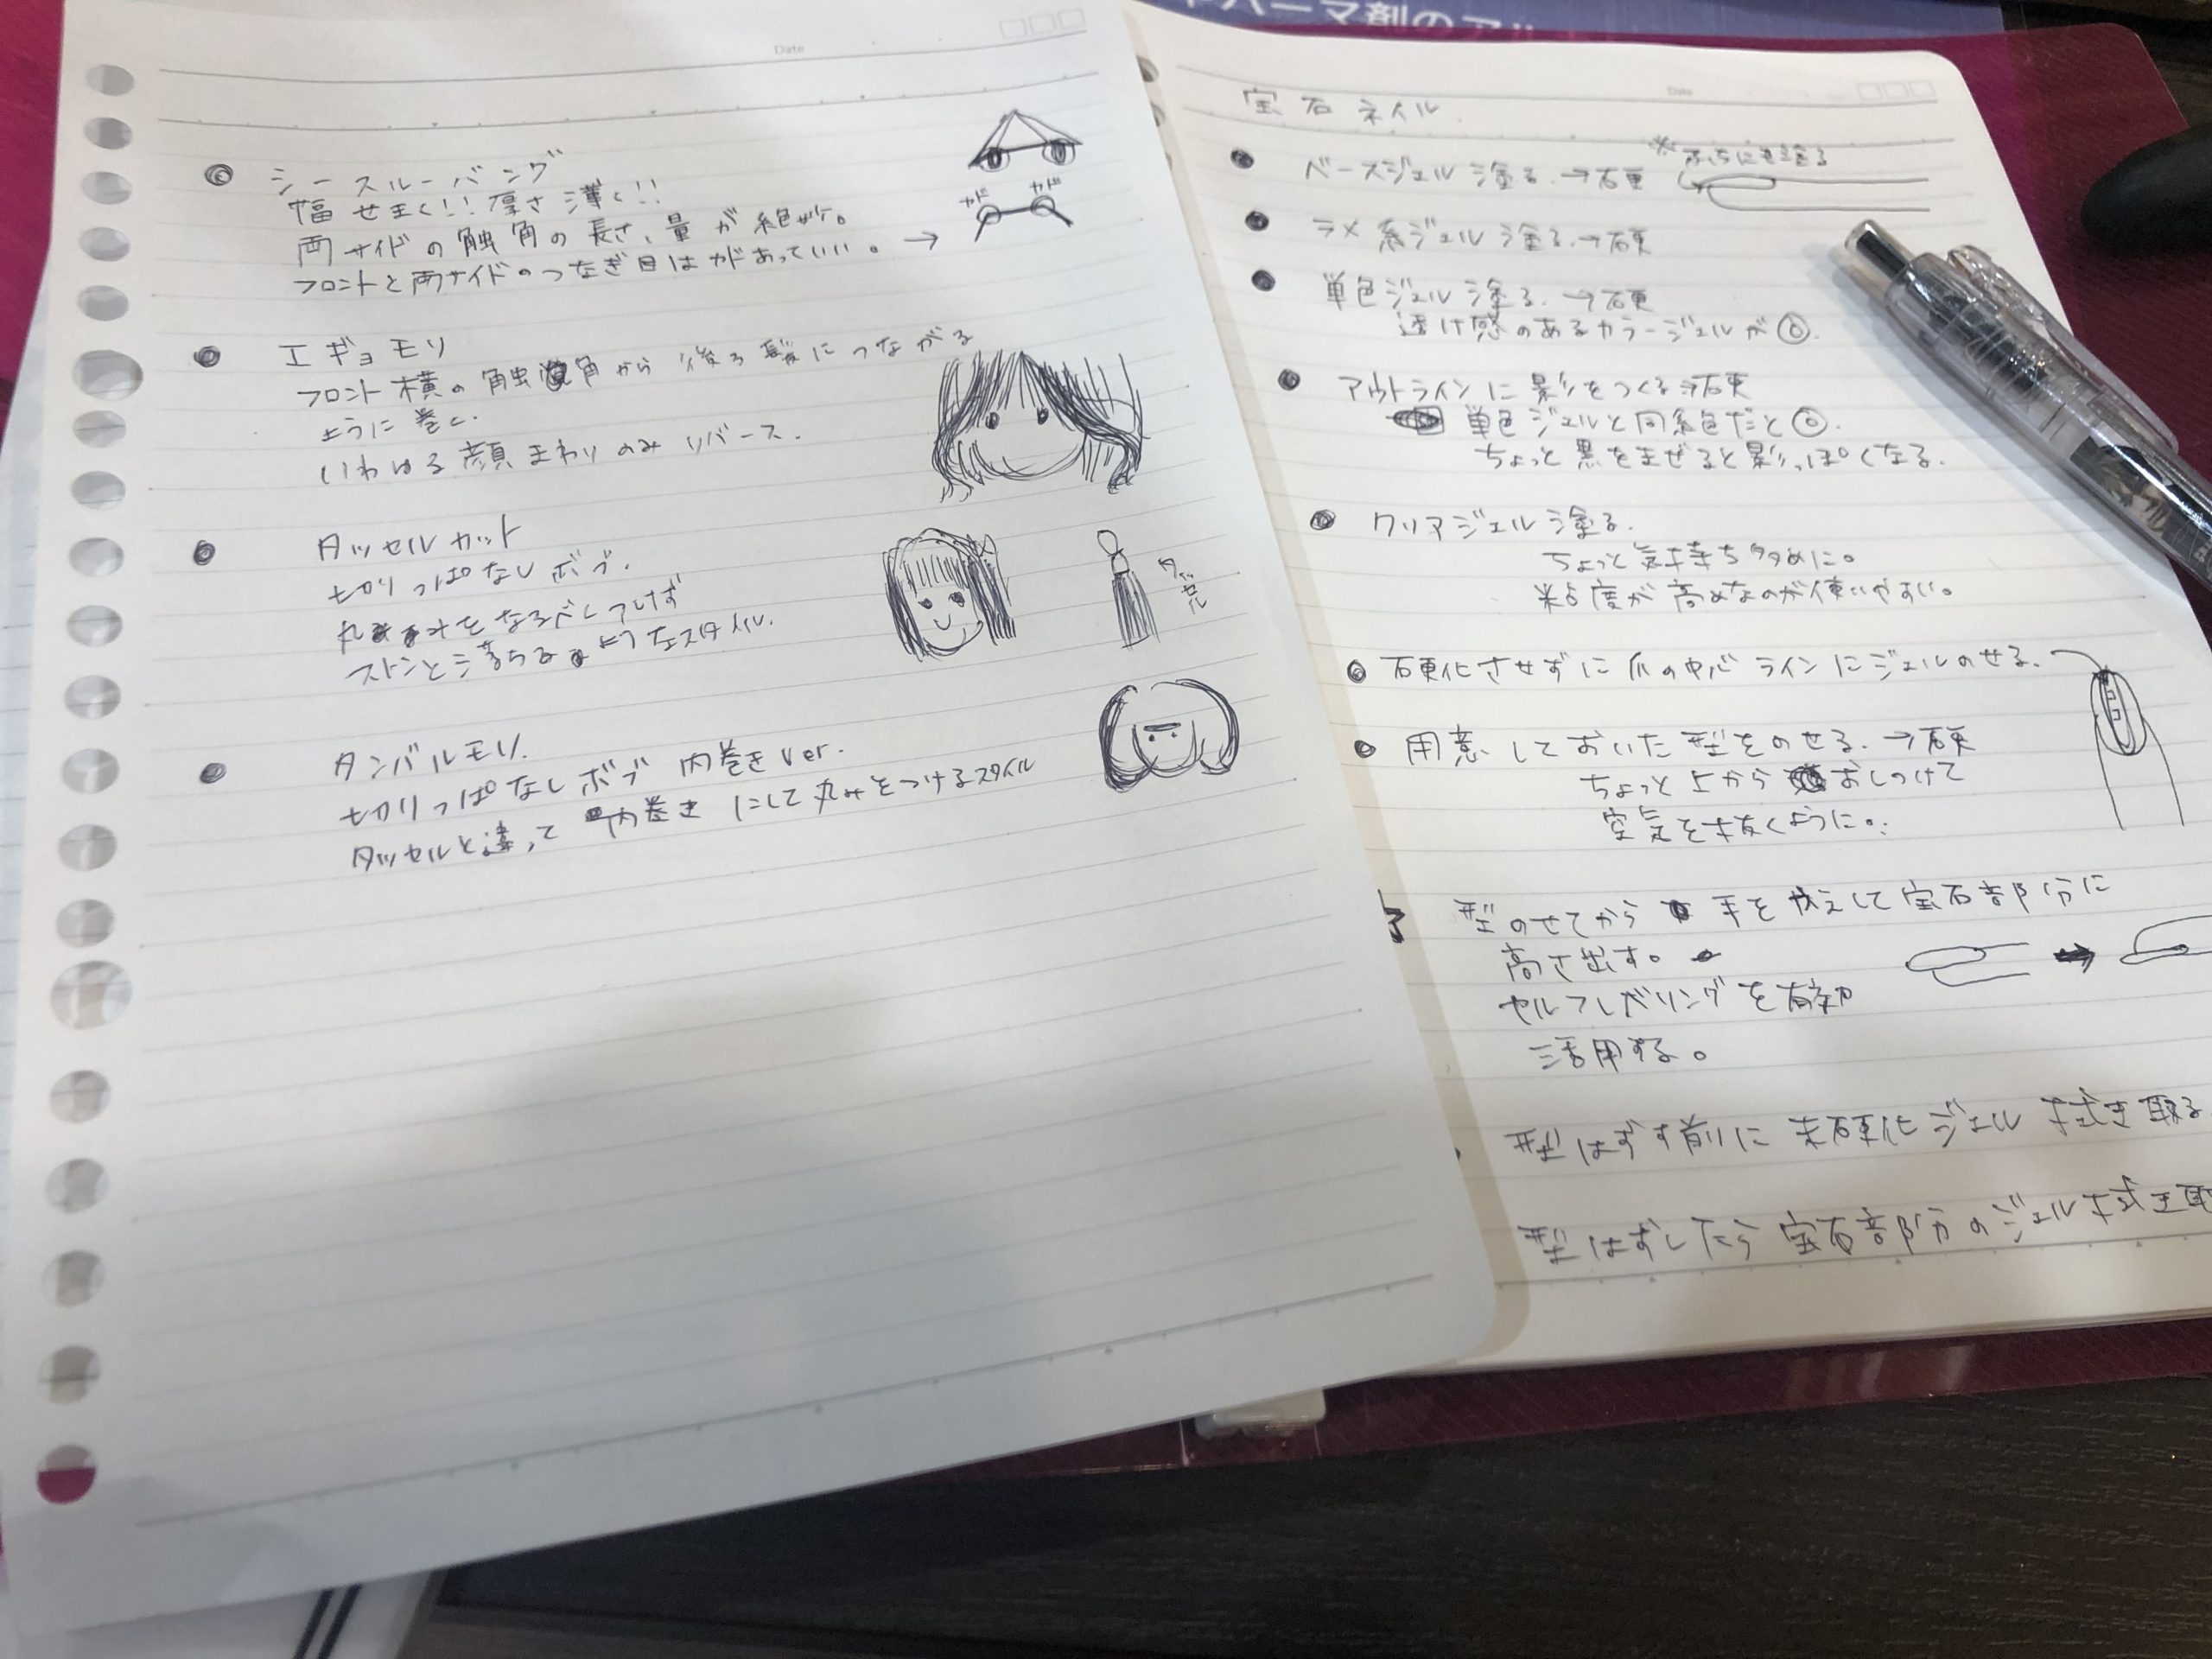 Date
シースルーバング
幅せまく!!厚さ薄く!!
両サイドの触角の長さ、量が絶妙。
フロントと両サイドのつなぎ目はカドあっていい。→
カド
カド
エギョモリ
フロント横の触角から後ろ髪につながる
ように巻く.
いわゆる顔まわりのみリバース.
タッセルカット
切りっぱなしボブ.
丸みをなるべくつけず
ストンと落ちるようなスタイル.
タッセル
タンバルモリ.
切りっぱなしボブ 内巻きver.
タッセルと違って内巻きにして丸みをつけるスタイル
パーマ剤のアル
Date
宝石ネイル
ベースジェル塗る.→硬
※ふちにも塗る
ラメ系ジェル塗る.→硬
単色ジェル塗る.→硬
透け感のあるカラージェルが◎.
アウトラインに影をつくる→硬
単色ジェルと同系色だと◎.
ちょっと黒をまぜると影っぽくなる.
クリアジェル塗る.
ちょっと気持ち多めに。
粘度が高めなのが使いやすい。
硬化させずに爪の中心ラインにジェルのせる.
用意しておいた型をのせる.→硬
ちょっと上からおしつけて
空気を抜くように。
型のせてから手を返して宝石部分に
高さ出す。
セルフレベリングを有効
活用する。
型はずす前に未硬化ジェル拭き取る
型はずしたら宝石部分のジェル拭き取